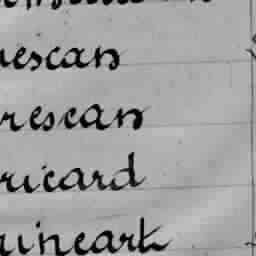 escan
rescan
ricard
uineart